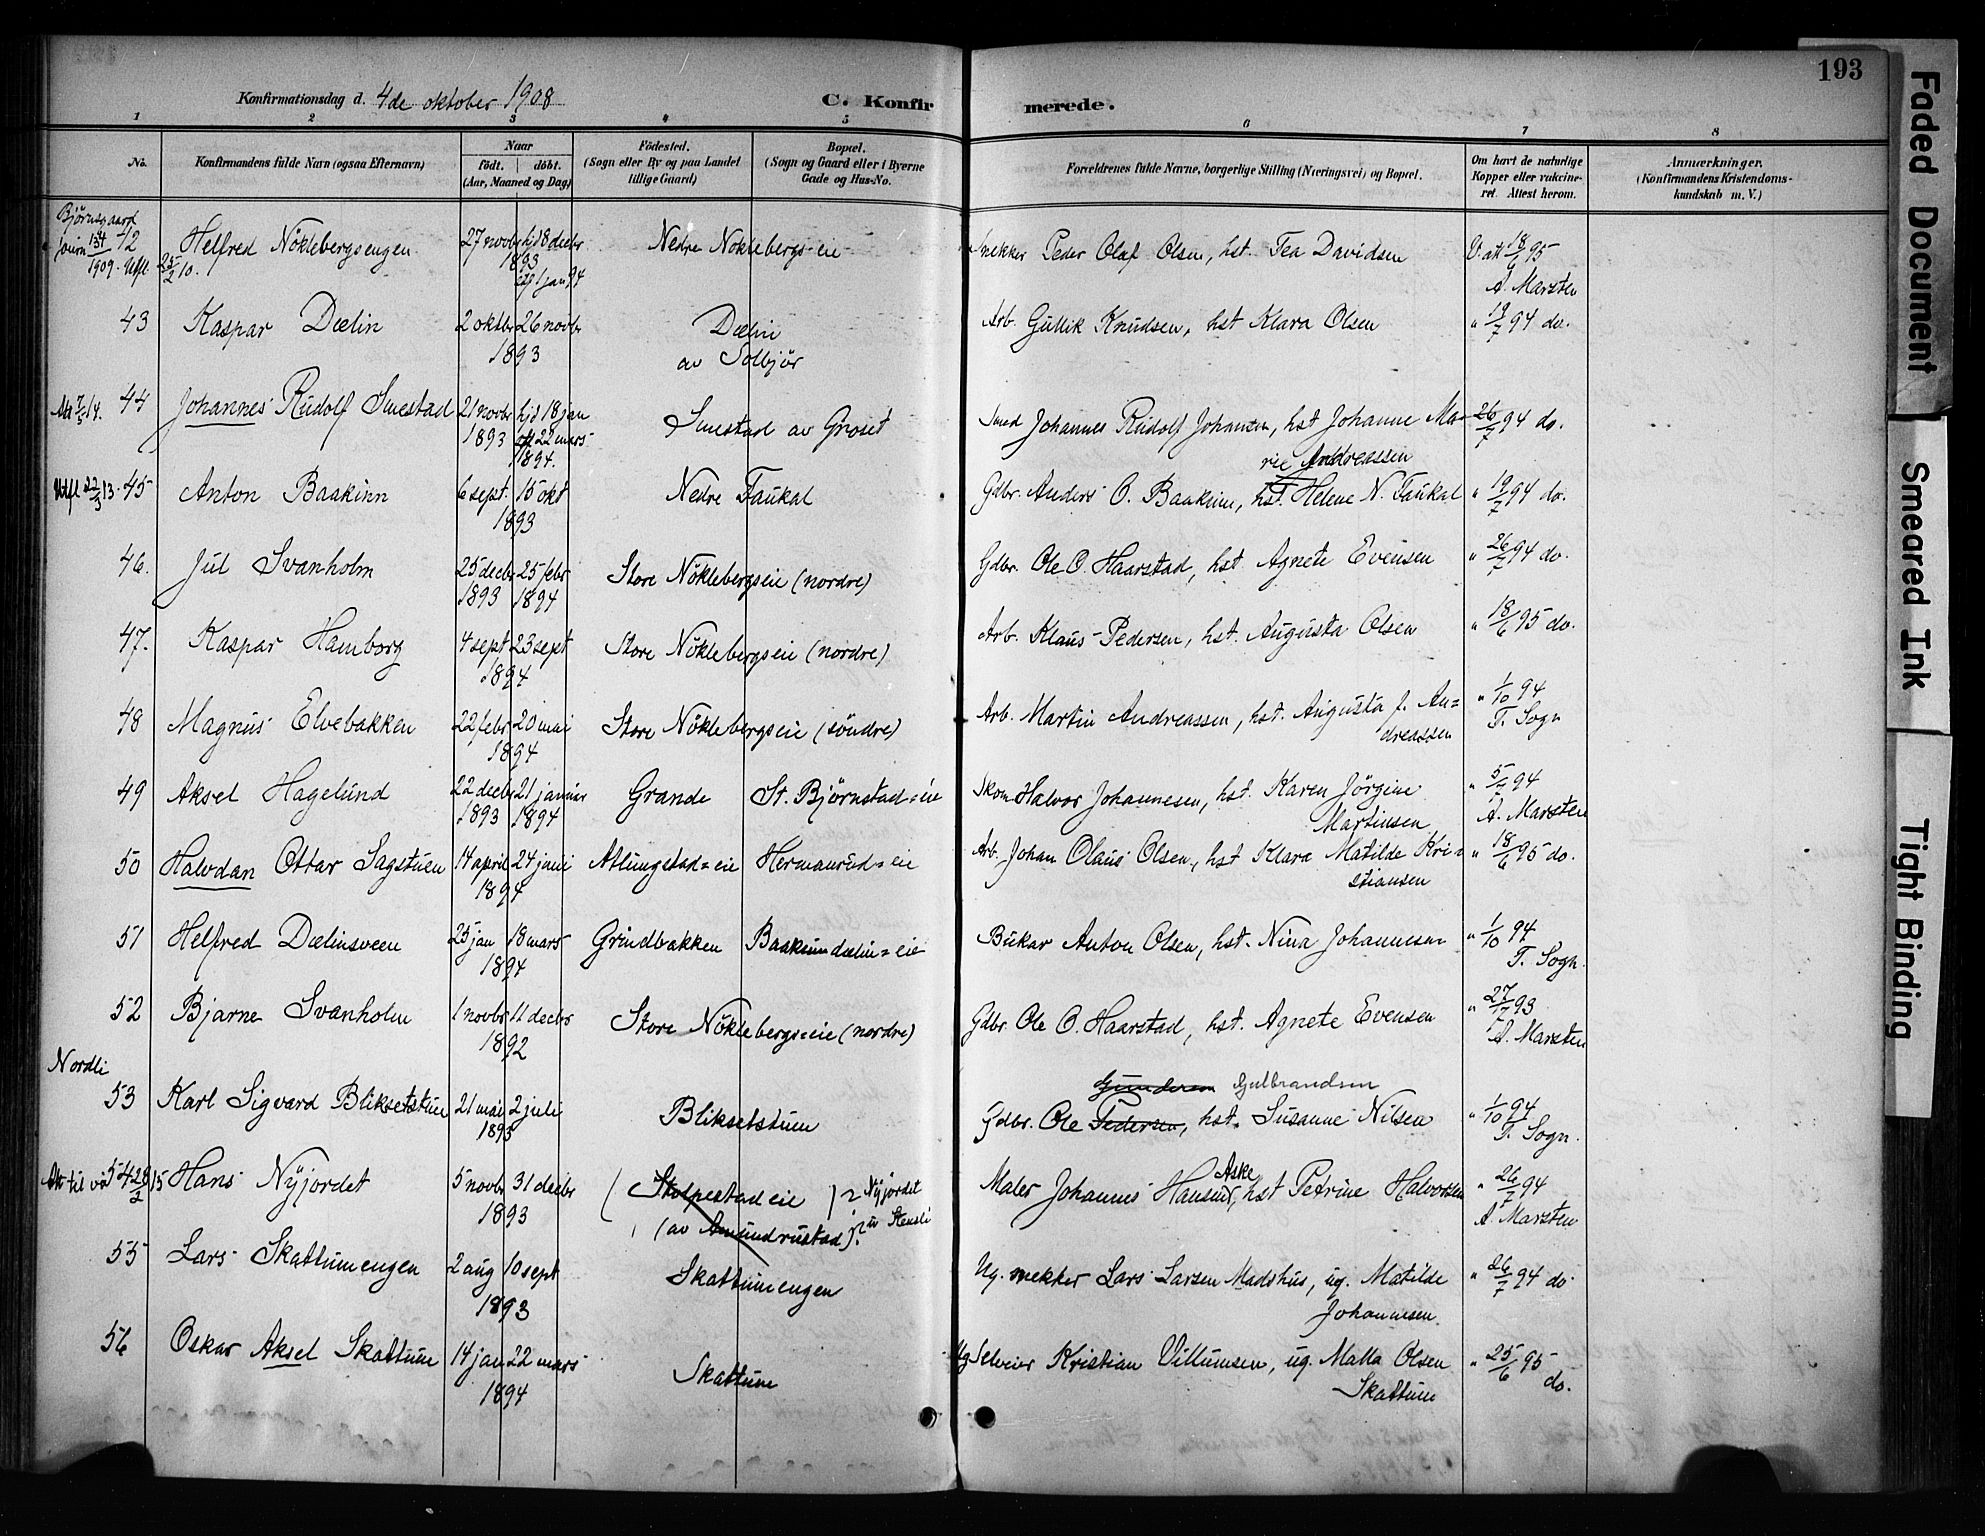 193
Konfirmationsdag d. 4de oktober 1908
C. Konfirmerede.
1 2 3 4 5 6 7 8
No.
Konfirmandens fulde Navn (ogsaa Efternavn)
Naar
födt. döbt.
(Aar, Maaned og Dag)
Födested.
(Sogn eller By og paa Landet
tillige Gaard)
Bopæl.
(Sogn og Gaard eller i Byerne
Gade og Hus-No.
Forældrenes fulde Navne, borgerlige Stilling (Næringsvei) og Bopæl.
Om havt de naturlige
Kopper eller vakcine-
ret. Attest herom.
Anmærkninger.
(Konfirmandens Kristendoms-
kundskab m. V.)
Bjørnsgaard
42 Helfred Nöklebergsengen 27 novbr hjd 18 decbr Nedre Nöklebergs-eie Snekker Peder Olaf Olsen, hst. Tea Davidsen V. att 18/6 95
1909. Utfl. 25/2 10. 1893 1 jan 94 A. Marsten
43 Kaspar Dælin 2 oktbr 26 novbr Dælin Arb. Gullik Knudsen, hst Klara Olsen " 19/7 94 do.
1893 av Solbjör
44 Johannes Rudolf Smestad 21 novbr hjd 18 jan Smestad av Groset Smed Johannes Rudolf Johansen, hst Johanne Ma- " 26/7 94 do.
1893 22 mars 1894. rie Andreassen
Utfl 22/3 13. 45 Anton Baakinn 6 sept. 15 okt Nedre Taukal Gdbr. Anders O. Baakinn, hst. Helene N. Taukal " 19/7 94 do.
1893
46. Jul Svanholm 25 decbr 25 febr Store Nöklebergseie (nordre) Gdbr. Ole O. Haarstad, hst Agnete Evensen " 26/7 94 do.
1893 1894
47. Kaspar Hamborg 4 sept 23 sept Store Nöklebergseie (nordre) Arb. Klaus Pedersen, hst. Augusta Olsen " 18/6 95 do.
1894
48 Magnus Elvebakken 22 febr 20 mai Store Nöklebergseie (söndre) Arb. Martin Andreassen, hst. Augusta f. An= " 1/10 94
1894 dreassen T. Sogn
49 Aksel Hagelund 22 decbr 21 januar Grande St. Björnstad=eie Skom Halvor Johannesen, hst. Karen Jörgine " 5/7 94
1893 1894 Martinsen A. Marsten
50 Halvdan Ottar Sagstuen 14 april 24 juni Atlungstad=eie Hermanrud=eie Arb. Johan Olaus Olsen, hst Klara Matilde Kri= " 18/6 95 do.
1894 stiansen
51 Helfred Dælinsveen 25 jan 18 mars Grindbakken Baakinn dælin=eie Anton Olsen, hst. Nina Johannesen " 1/10 94
1894 T. Sogn.
52 Bjarne Svanholm 1 novbr 11 decbr Store Nöklebergs=eie (nordre) Gdbr. Ole O. Haarstad, hst. Agnete Evensen " 27/7 93
1892 A. Marsten
Nordli
Gundersen Gulbrandsen
53 Karl Sigvard Bliksetstuen 21 mai 2 juli Bliksetstuen Gdbr. Ole Pedersen, hst. Susanne Nilsen " 1/10 94
1893 T. Sogn.
54 Hans Nyjordet 5 novbr 31 decbr (Stolpestad eie) Nyjordet Maler Johannes Hansen Aske, hst Petrine Halvorsen " 26/7 94
1893 (av Amundrustad) av Stensli A. Marsten
55 Lars Skattumengen 2 aug 10 sept Skattumengen Ug. snekker Lars Larsen Madshus, ug. Matilde " 26/7 94 do.
1893 Johannesen.
56 Oskar Aksel Skattum 14 jan 22 mars Skattum Ug Selveier Kristian Villumsen, ug. Malla Olsen " 25/6 95
1894 Skattum do.
Faded Document
Smeared Ink
Tight Binding